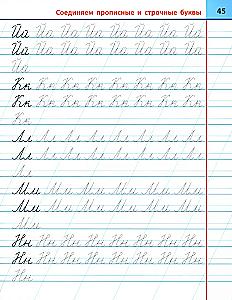 Соединяем прописные и строчные буквы 45
Йа Йа Йа Йа Йа Йа Йа Йа
Йа Йа Йа Йа Йа Йа Йа Йа
Йа
Кк Кк Кк Кк Кк Кк Кк Кк
Кк Кк Кк Кк Кк Кк Кк Кк
Кк
Лл Лл Лл Лл Лл Лл Лл Лл
Лл Лл Лл Лл Лл Лл Лл Лл
Лл
Мм Мм Мм Мм Мм Мм
Мм Мм Мм Мм Мм Мм
Мм
Нн Нн Нн Нн Нн Нн Нн Нн
Нн Нн Нн Нн Нн Нн Нн Нн
Нн